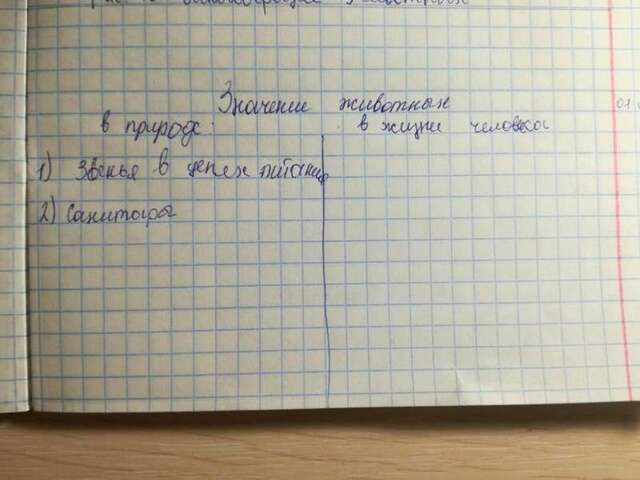 Значение животных
в природе: в жизни человека
1) Звенья в цепях питания
2) Санитары
01